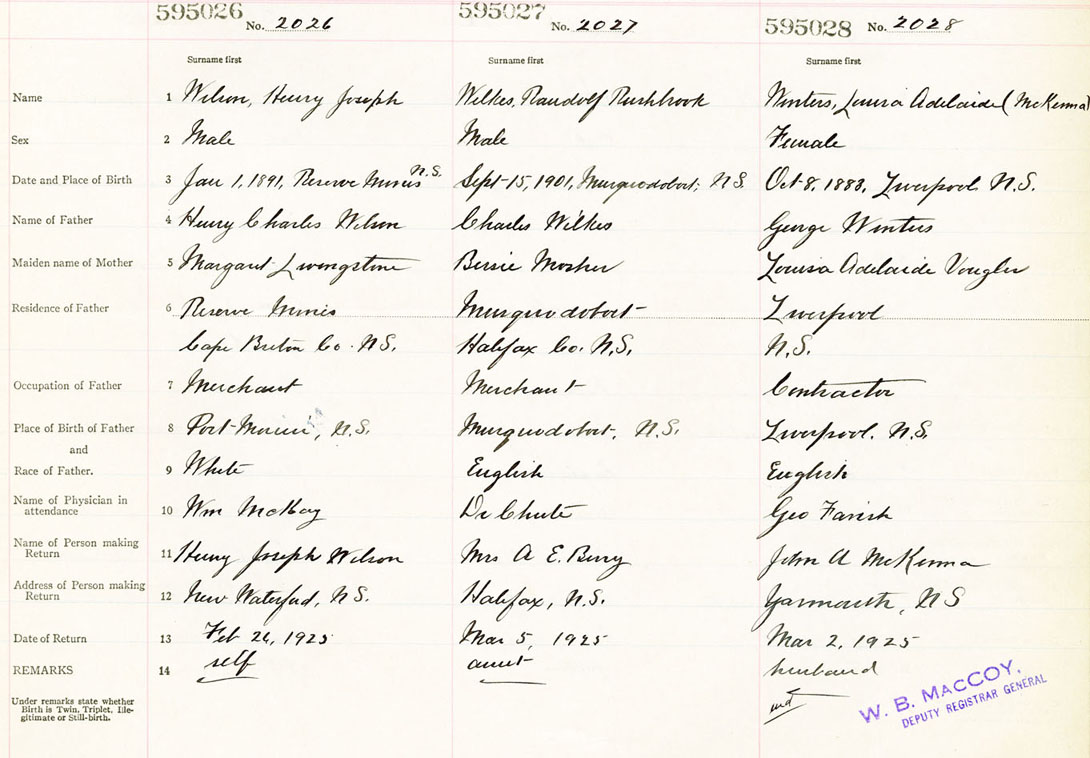 595026 No. 2026 595027 No. 2027 595028 No. 2028
Surname first Surname first Surname first
Name 1 Wilson, Henry Joseph Wilkes, Randolf Rushbrook Winters, Louisa Adelaide (McKenna)
Sex 2 Male Male Female
Date and Place of Birth 3 Jan 1, 1891, Reserve Mines N.S. Sept 15, 1901, Musquodoboit, N.S. Oct 8, 1883, Liverpool N.S.
Name of Father 4 Henry Charles Wilson Charles Wilkes George Winters
Maiden name of Mother 5 Margaret Livingstone Bessie Mosher Louisa Adelaide Vougler
Residence of Father 6 Reserve Mines Musquodoboit Liverpool
Cape Breton Co. N.S. Halifax Co. N.S. N.S.
Occupation of Father 7 Merchant Merchant Contractor
Place of Birth of Father 8 Port Morien, N.S. Musquodoboit, N.S. Liverpool. N.S.
and
Race of Father. 9 White English English
Name of Physician in
attendance 10 Wm McKay Dr Chute Geo Farish
Name of Person making
Return 11 Henry Joseph Wilson Mrs A E. Berry John A McKenna
Address of Person making
Return 12 New Waterford, N.S. Halifax, N.S. Yarmouth, N S
Date of Return 13 Feb 26, 1925 Mar 5, 1925 Mar 2, 1925
REMARKS 14 self aunt husband
Under remarks state whether
Birth is Twin, Triplet, Ille-
gitimate or Still-birth.
W. B. MACCOY,
DEPUTY REGISTRAR GENERAL